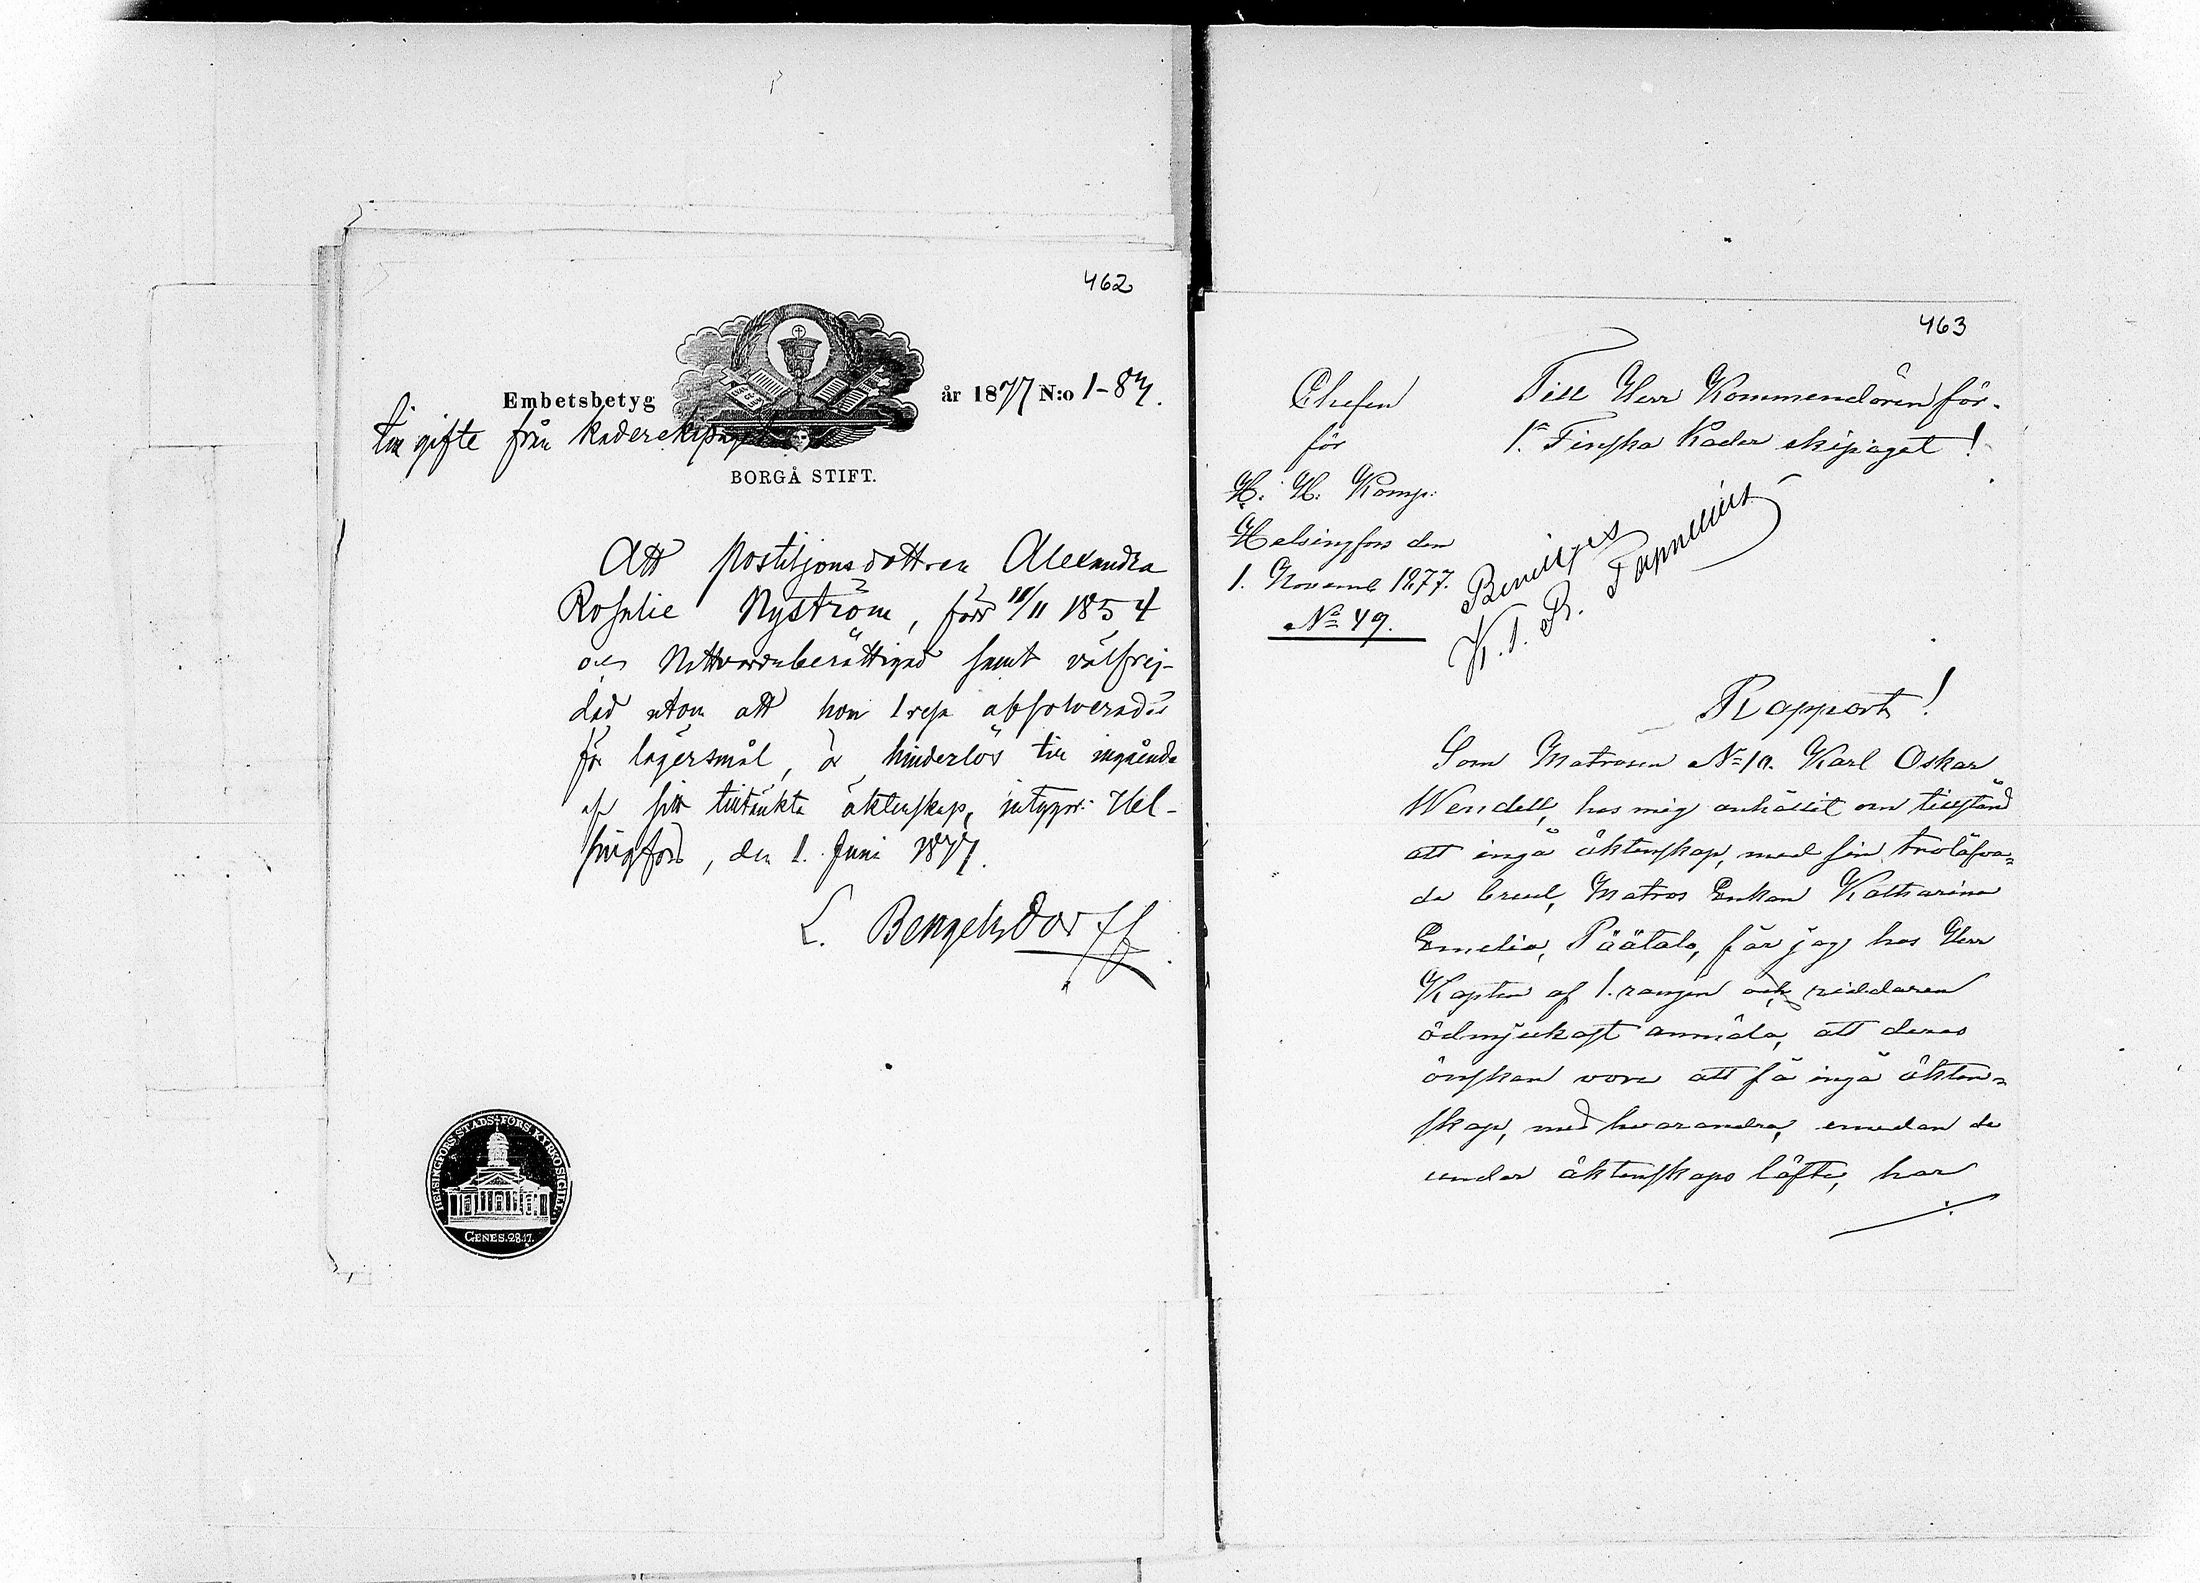 462
Embetsbetyg år 1877 N:o 1-87.
till gifte från kaderekipaget
BORGÅ STIFT.
Att postiljonsdottren Alexandra
Rosalie Nyström, född 18/11 1854
och Nattvardsberättigad samt välfrej-
dad utom att hon 1 resa absolverades
för lägersmål, är hinderlös till ingående
af sitt tilltänkta äktenskap, intygar: Hel-
singfors, den 1. Juni 1877.
L. Bengelsdorff
HELSINGFORS STADS FÖRS. KYRKOSIGILL.
GENES. 28.17.
463
Chefen
för
H. Komp:
Helsingfors den
1. Novemb 1877.
No 49.
Till Herr Kommendören för
1a Finska Kader ekipaget!
Beviljas
Rapport!
Som Matrosen No 10. Karl Oskar
Wendell, hos mig anhållit om tillstånd
att ingå äktenskap, med sin trolåfva=
de brud, Matros Enkan Katharina
Emelia, Päätalo, får jag hos Herr
Kapten af 1. rangen och riddaren
ödmjukast anmäla, att deras
önskan vore att få ingå äkten=
skap, med hvarandra, emedan de
under äktenskaps löfte, har